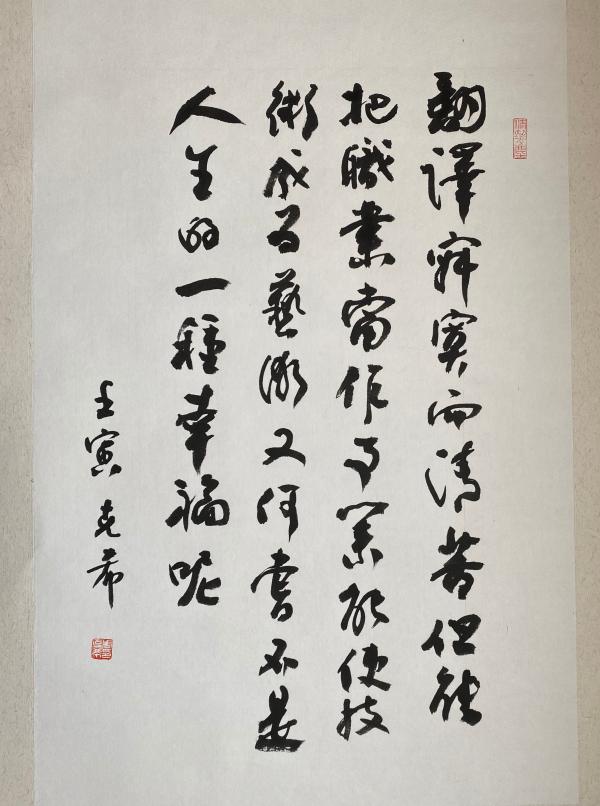 翻譯寂寞而清苦但能
把職業當作事業能使技
術成為藝術又何嘗不是
人生的一種幸福呢
壬寅 克希